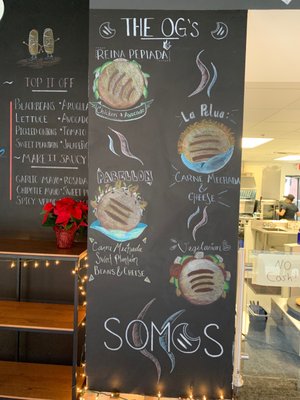 TOP IT OFF
BLACK BEANS • ARUGULA
LETTUCE • ROCKET
PICKLED ONION • TOMATO
SWEET PLANTAIN • JALAPEÑO
MAKE IT SAUCY
GARLIC MAYO • ROSADA
CHIPOTLE MAYO •
SPICY VERDE
THE OG's
REINA PEPIADA
CHICKEN & AVOCADO
La Pelua
CARNE MECHADA
& CHEESE
PABELLON
CARNE MECHADA
SWEET PLANTAIN
BEANS & CHEESE
VEGETARIAN
SOMOS
NO
Cash